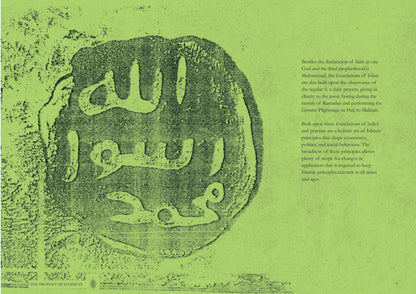 الله
رسول
محمد
Besides the declaration of faith in one
God and the final prophethood of
Muhammad, the foundations of Islam
are also built upon the observance of
the regular 5 x daily prayers, giving in
charity to the poor, fasting during the
month of Ramadan and performing the
Greater Pilgrimage or Hajj to Makkah.
Built upon these foundations of belief
and practice are a holistic set of Islamic
principles that shape economies,
politics, and social behaviour. The
broadness of these principles allows
plenty of scope for changes in
application that is required to keep
Islamic principles relevant in all times
and ages.
THE PROPHET MUHAMMAD